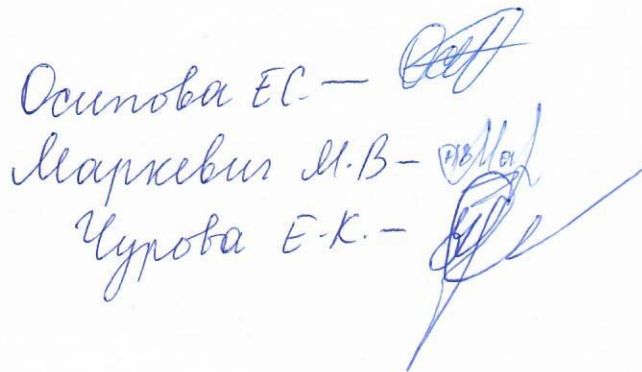 Осипова Е.С. —
Маркевич М.В —
Чурова Е.К. —